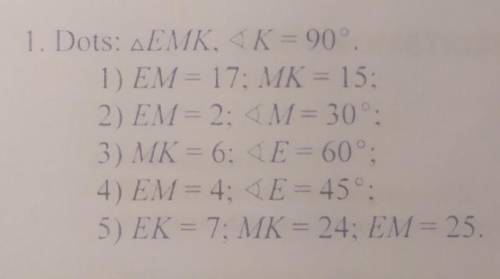 1. Dots: △EMK, ∢K = 90°.
1) EM = 17; MK = 15;
2) EM = 2; ∢M = 30°;
3) MK = 6; ∢E = 60°;
4) EM = 4; ∢E = 45°;
5) EK = 7; MK = 24; EM = 25.